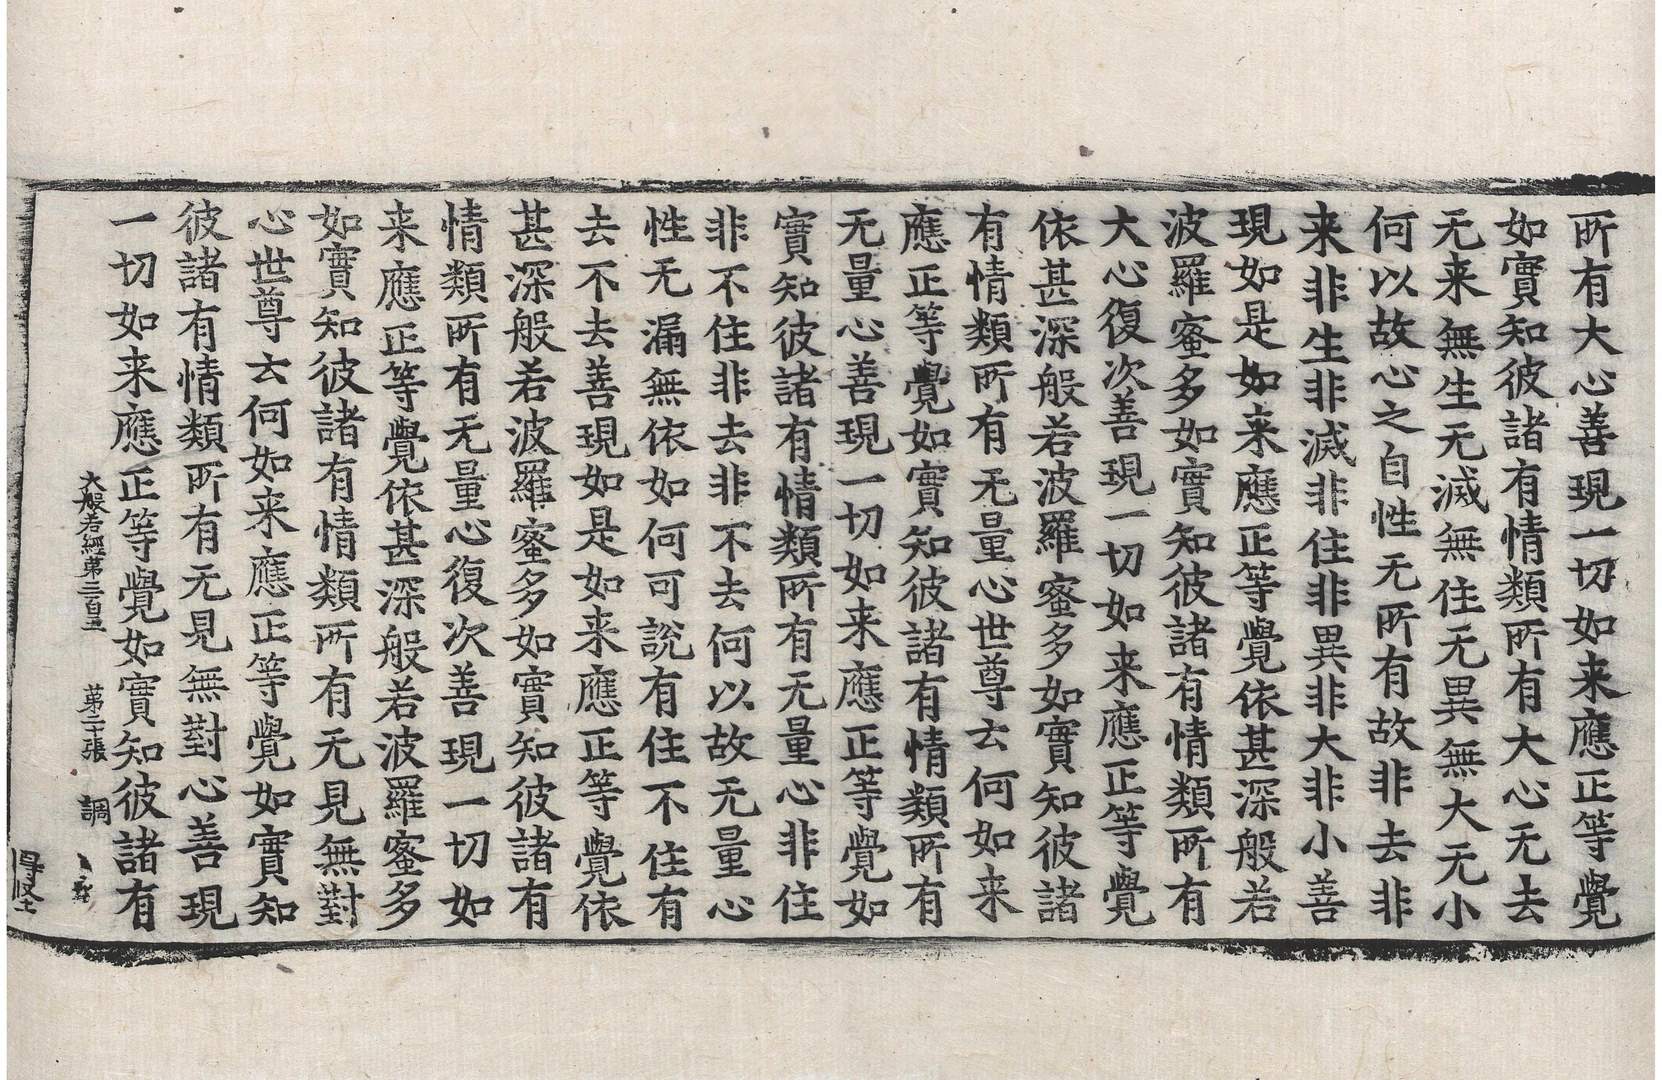 所有大心善現一切如来應正等覺
如實知彼諸有情類所有大心无去
无来無生无滅無住无異無大无小
何以故心之自性无所有故非去非
来非生非滅非住非異非大非小善
現如是如来應正等覺依甚深般若
波羅蜜多如實知彼諸有情類所有
大心復次善現一切如来應正等覺
依甚深般若波羅蜜多如實知彼諸
有情類所有无量心世尊云何如来
應正等覺如實知彼諸有情類所有
无量心善現一切如来應正等覺如
實知彼諸有情類所有无量心非住
非不住非去非不去何以故无量心
性无漏無依如何可說有住不住有
去不去善現如是如来應正等覺依
甚深般若波羅蜜多如實知彼諸有
情類所有无量心復次善現一切如
来應正等覺依甚深般若波羅蜜多
如實知彼諸有情類所有无見無對
心世尊云何如来應正等覺如實知
彼諸有情類所有无見無對心善現
一切如来應正等覺如實知彼諸有
大般若經第三百五 第二十張 調